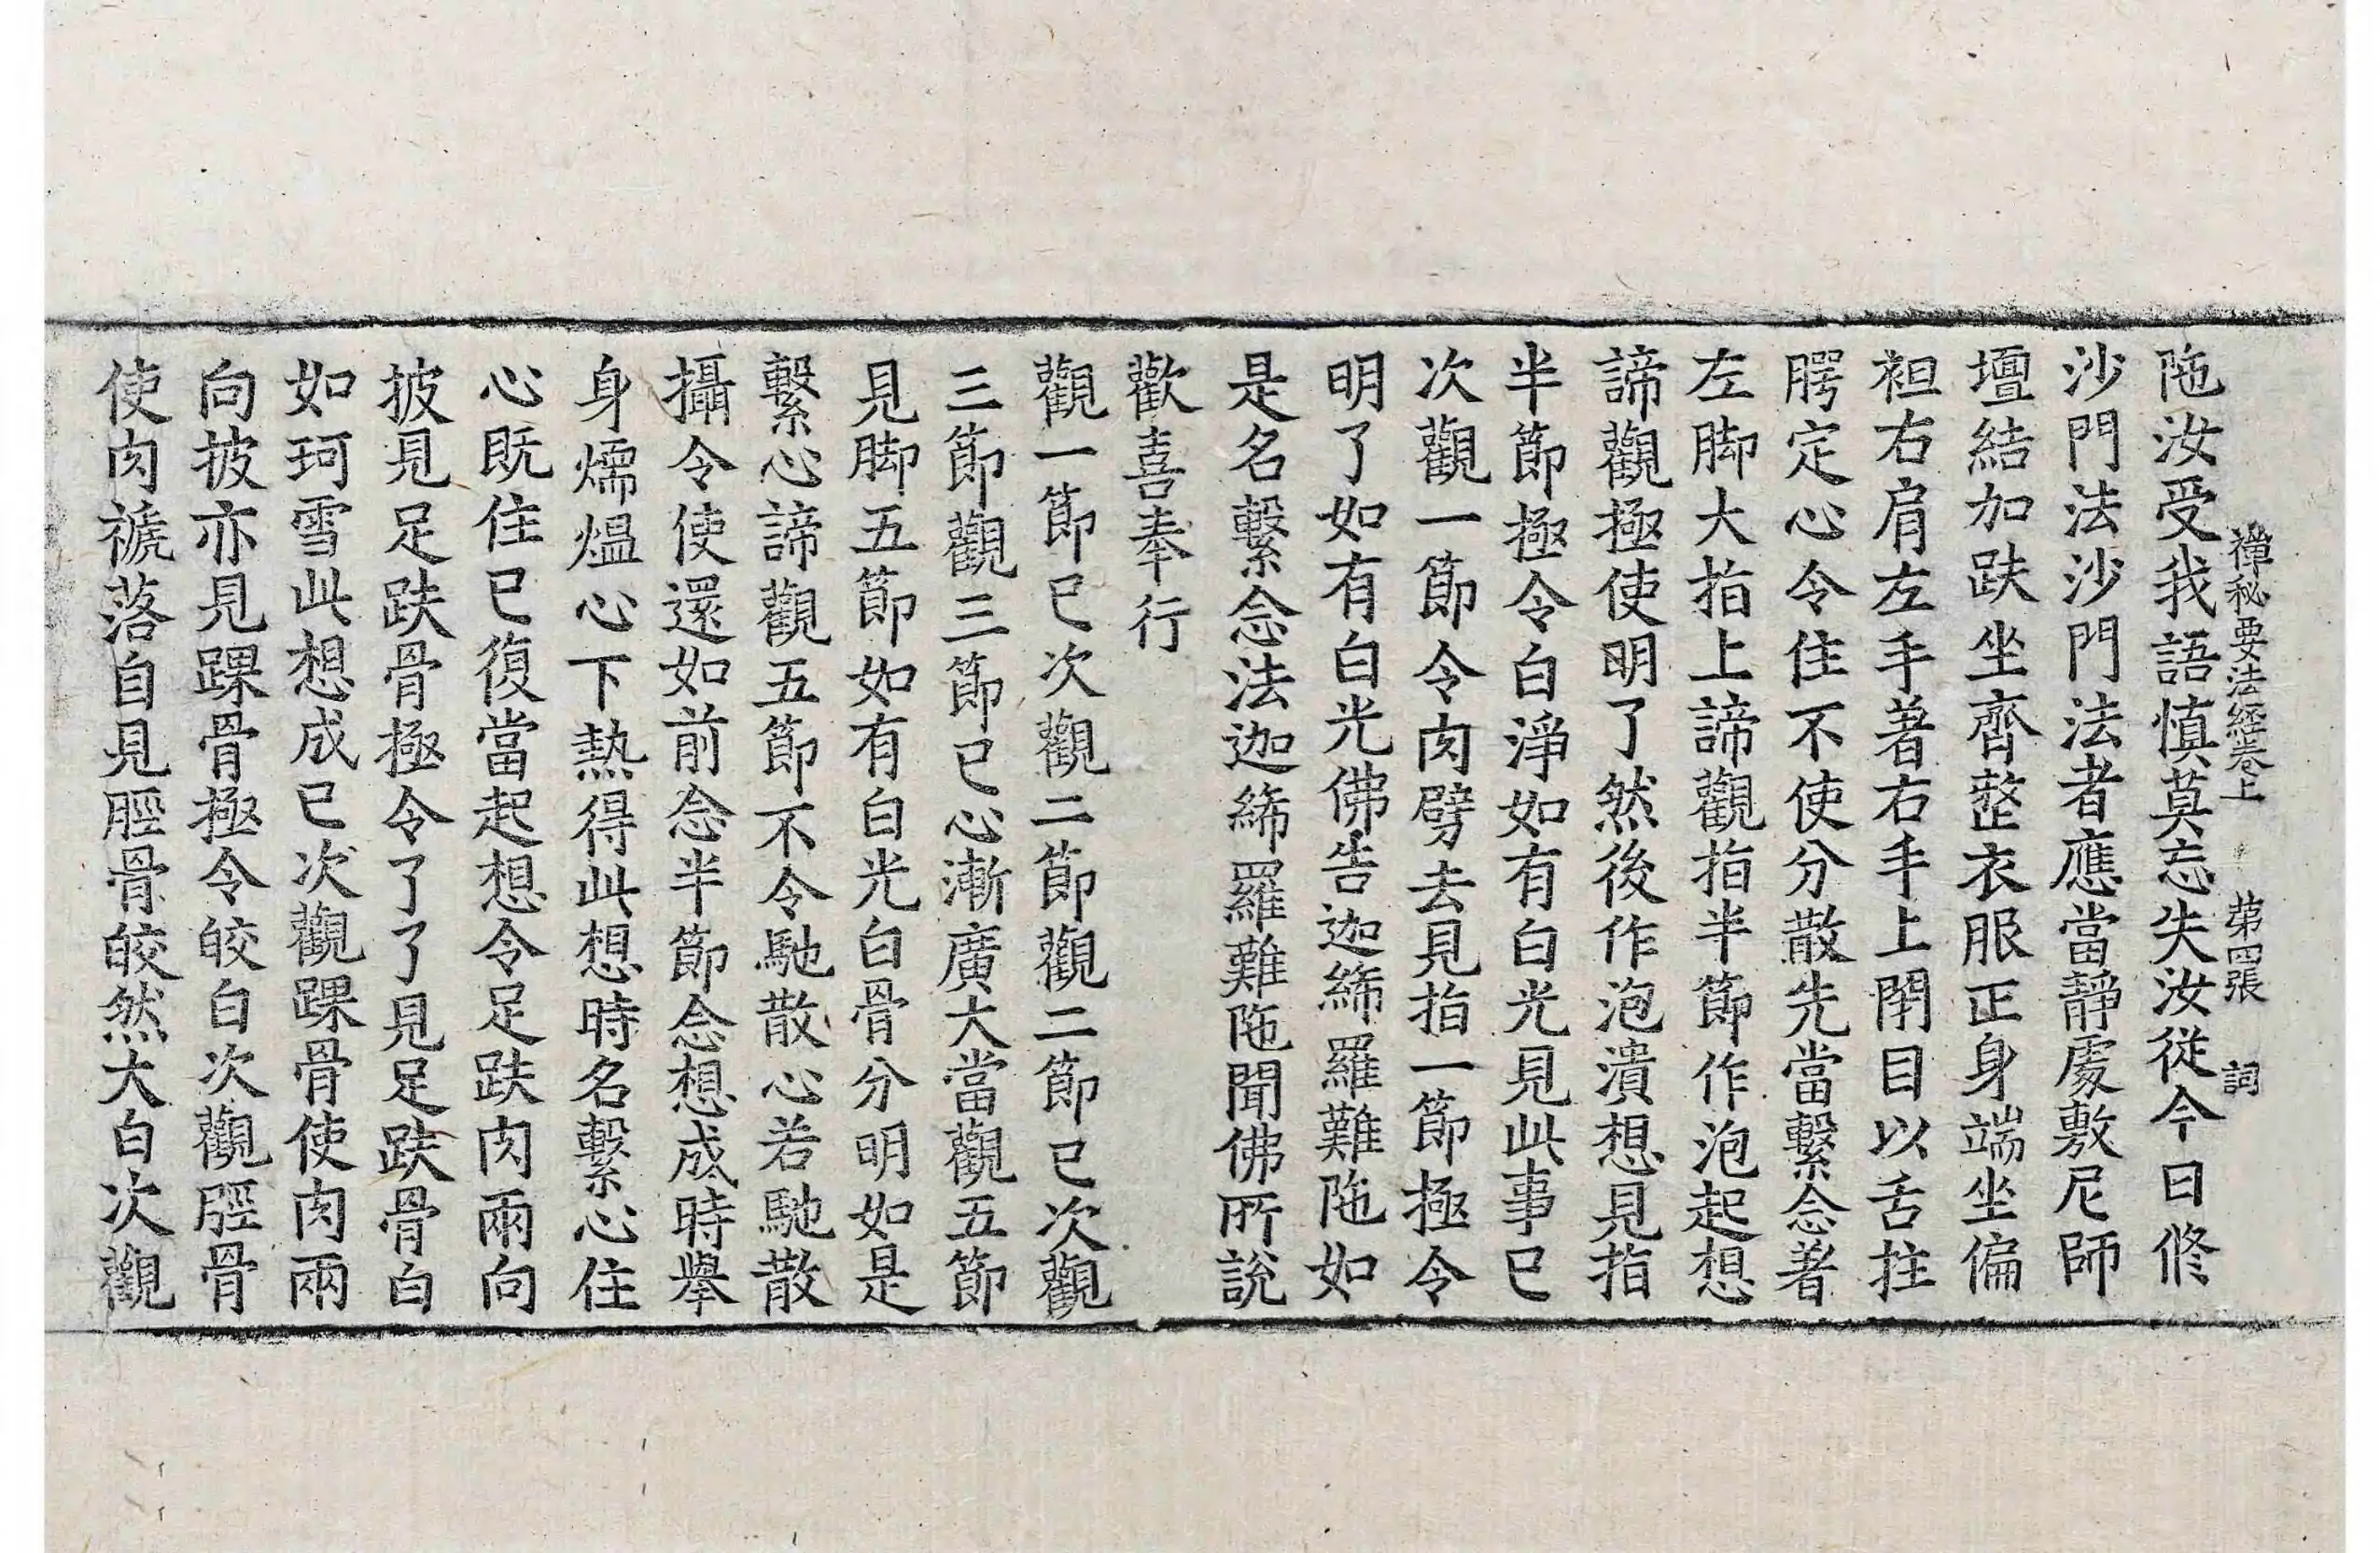 禪秘要法經卷上　第四張　詞
陁汝受我語慎莫忘失汝從今日修
沙門法沙門法者應當靜處敷尼師
壇結加趺坐齊整衣服正身端坐偏
袒右肩左手著右手上閇目以舌拄
腭定心令住不使分散先當繫念著
左脚大指上諦觀指半節作泡起想
諦觀極使明了然後作泡潰想見指
半節極令白淨如有白光見此事已
次觀一節令肉劈去見指一節極令
明了如有白光佛告迦絺羅難陁如
是名繫念法迦絺羅難陁聞佛所說
歡喜奉行
觀一節已次觀二節觀二節已次觀
三節觀三節已心漸廣大當觀五節
見脚五節如有白光白骨分明如是
繫心諦觀五節不令馳散心若馳散
攝令使還如前念半節念想成時舉
身煗熅心下熱得此想時名繫心住
心既住已復當起想令足趺肉兩向
披見足趺骨極令了了見足趺骨白
如珂雪此想成已次觀踝骨使肉兩
向披亦見踝骨極令皎白次觀脛骨
使肉褫落自見脛骨皎然大白次觀